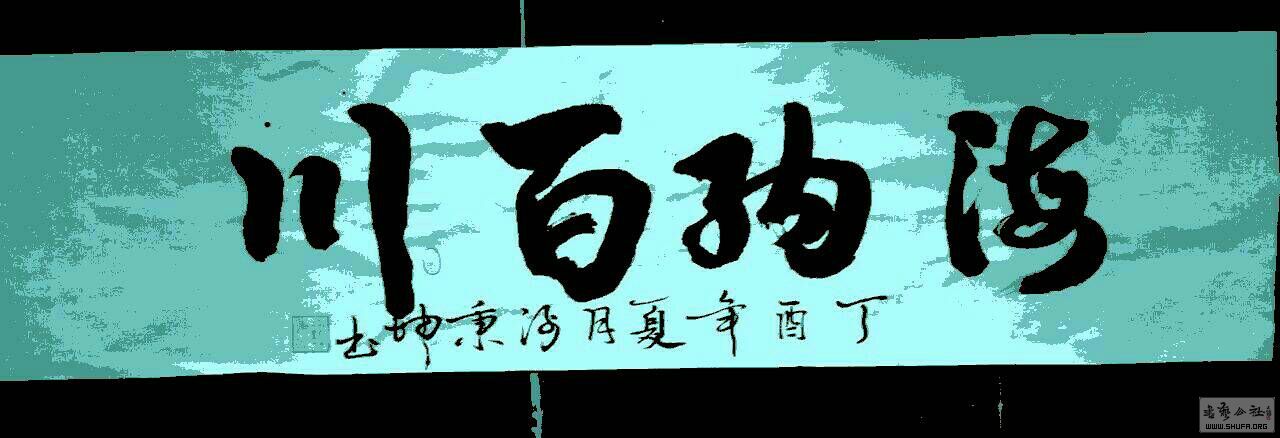 海纳百川
丁酉年夏月海秉坤书
书艺公社
WWW.SHUFA.ORG